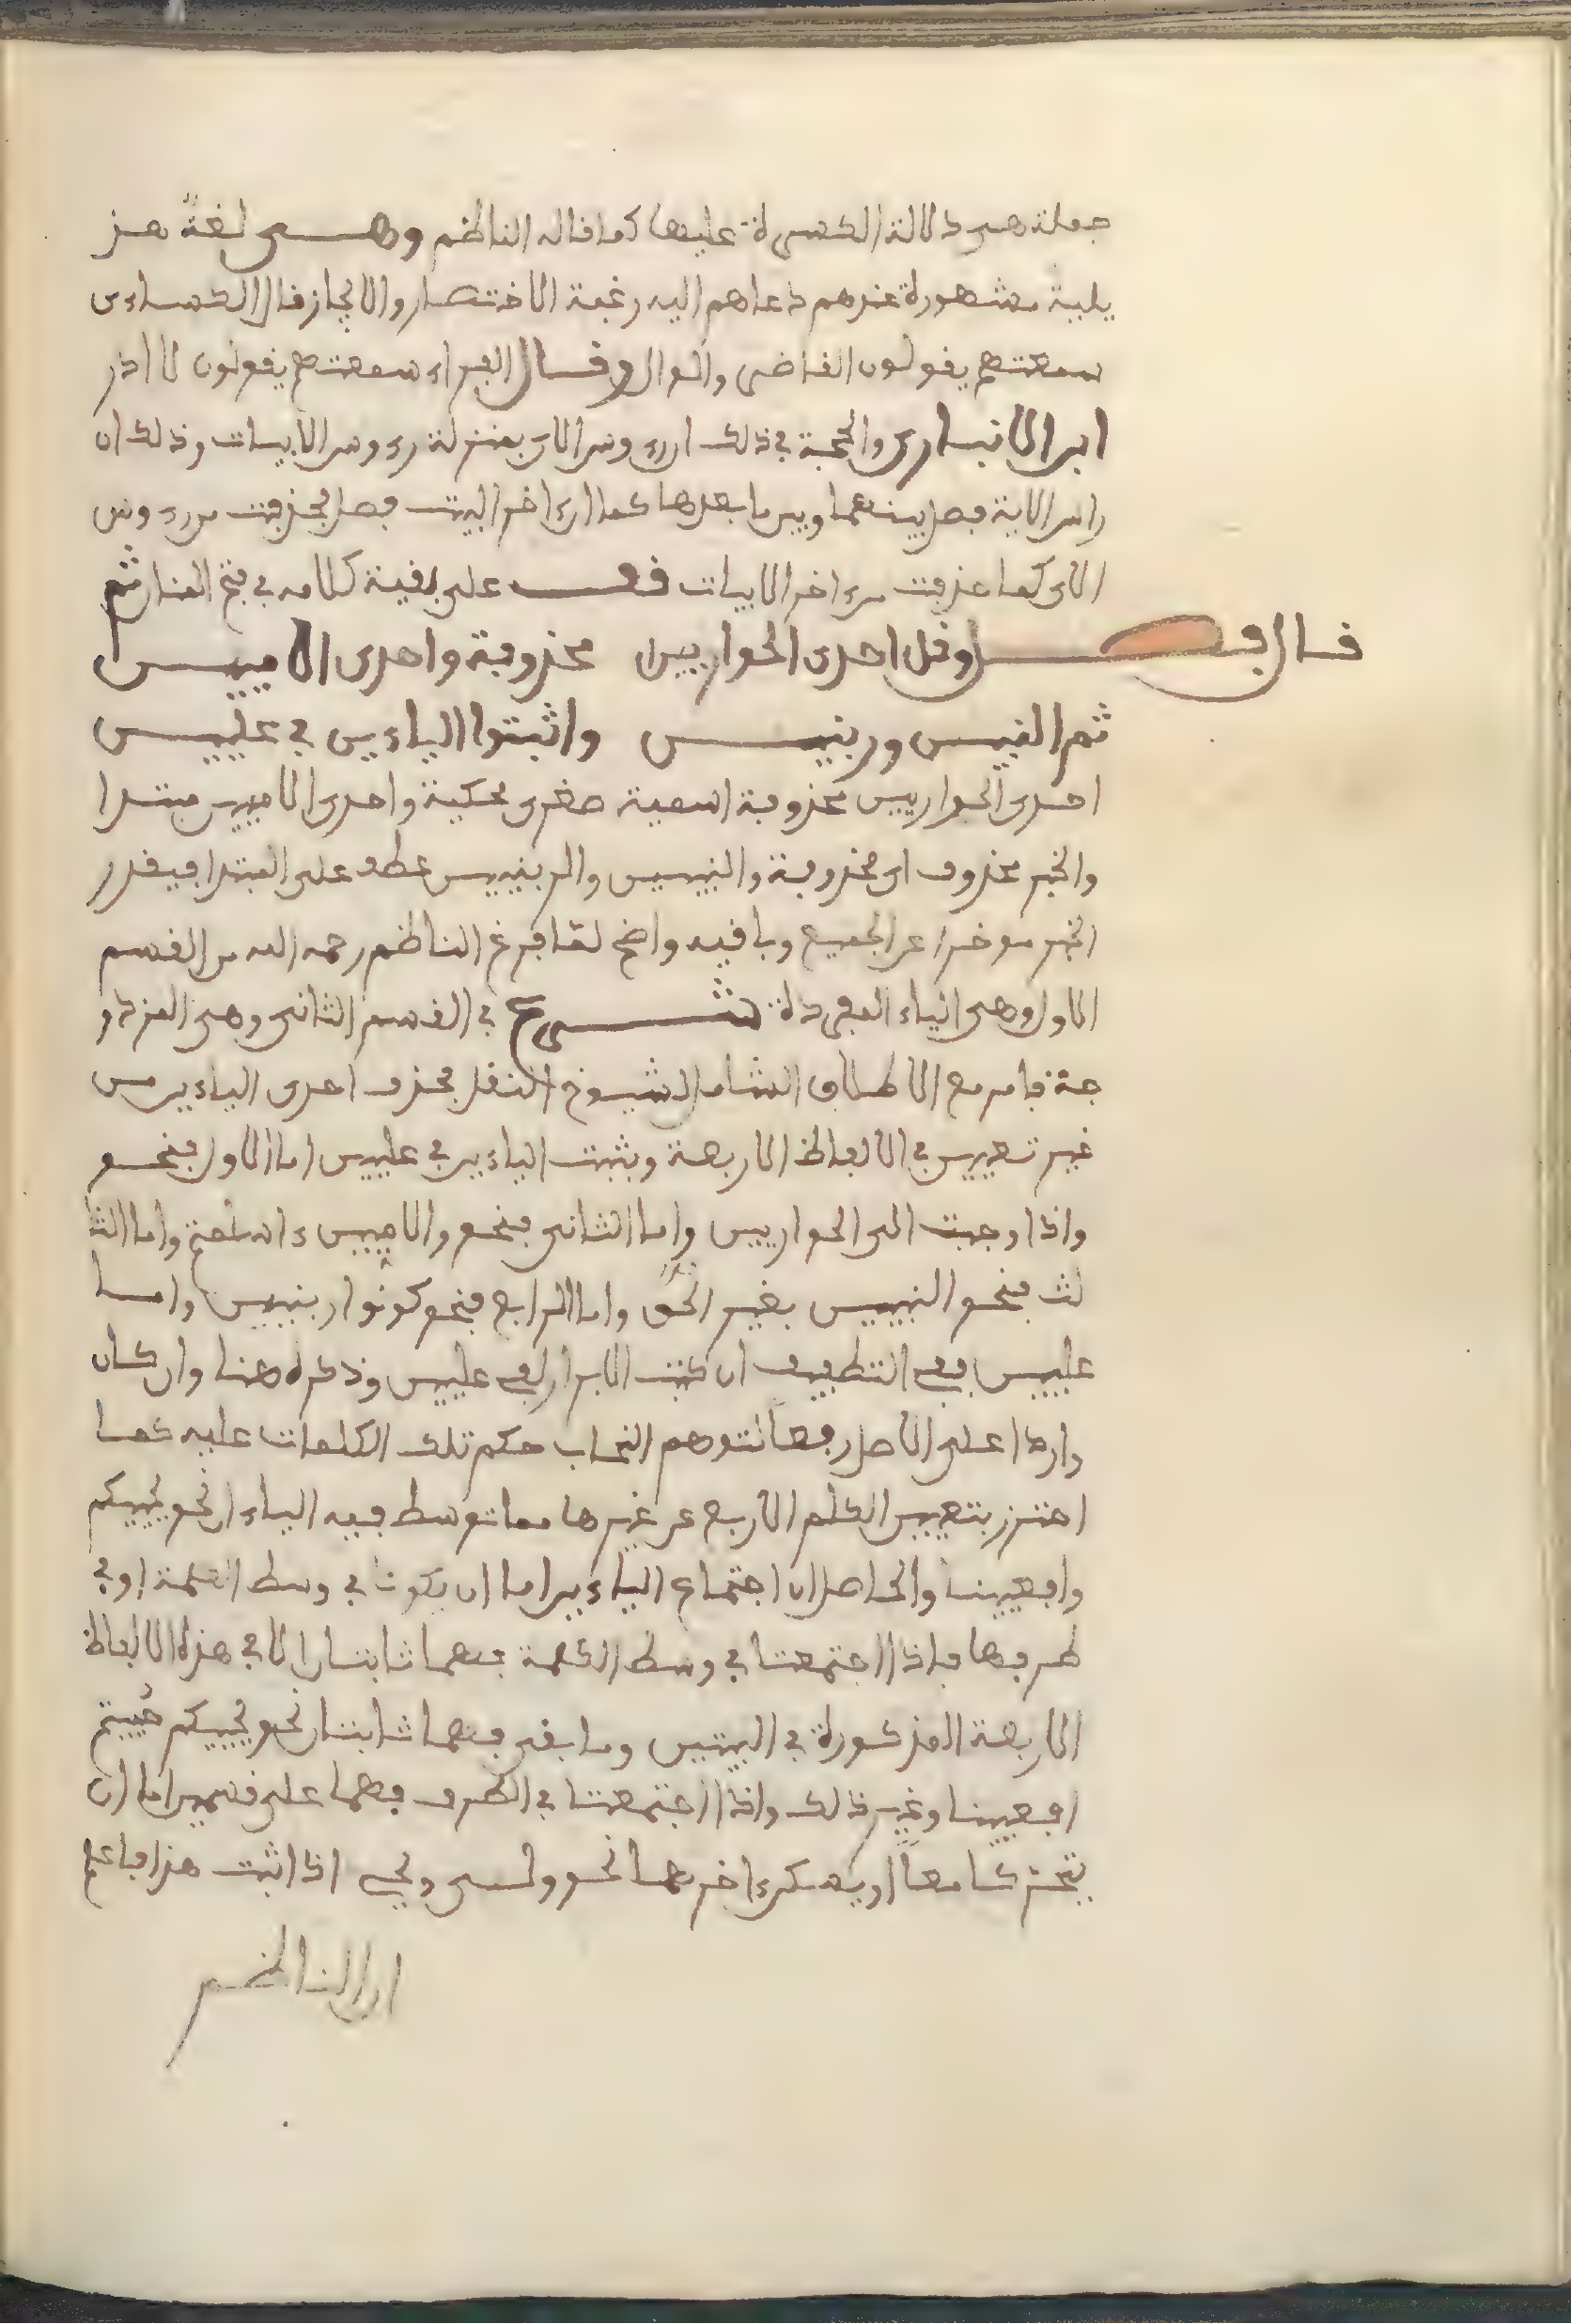 جملة هى دلالة الكسرة عليها كما قاله الناظم وهى لغة هذ
يلية مشهورة عندهم دعاهم اليه رغبة الاختصار والايجاز قال الكساءى
سمعتهم يقولون القاض والوال وقال الفراء سمعتهم يقولون لا ادر
ابن الانبارى والحجة في ذلك ان رءوس الاى بمنزلة رءوس الابيات وذلك ان
راس الاية فصل بينها وبين ما بعدها كما ان اخر البيت فصل فحذفت من رءوس
الاى كما حذفت من اخر الابيات فف على بقية كلامه في فتح المنان ثم
قال فصل وقل احدى الحواريين محذوفة واحدى الاميين
ثم النبيين وربنيين واثبتوا الياءين في عليين
احدى الحواريين محذوفة اسمية صغرى محكية واحدى الاميين مبتدا
والخبر محذوف اى محذوفة والنبيين والربنيين عطف على المبتدا فيقدر
الخبر موخرا عن الجميع وباقيه واضح لما فرغ الناظم رحمه الله من القسم
الاول وهى الياء المفردة شرع في القسم الثانى وهى المزدو
جة فامر مع الاطلاق الشامل لشيوخ النقل بحذف احدى الياءين من
غير تعيين في الالفاظ الاربعة وبثبت الياءين في عليين اما الاول فنحو
واذ اوحيت الى الحواريين واما الثانى فنحو والاميين ءاسلمتم واما الثا
لث فنحو النبيين بغير الحق واما الرابع فنحو كونوا ربنيين واما
عليين ففى التطفيف ان كتب الابرار لفى عليين وذكره هنا وان كان
واردا على الاصل رفعا لتوهم انسحاب حكم تلك الكلمات عليه كما
احترز بتعيين الكلم الاربع عن غيرها مما توسط فيه الياءان نحو يحييكم
وافعيينا والحاصل ان اجتماع الياءين اما ان يكون في وسط الكلمة او في
طرفها فاذا اجتمعتا في وسط الكلمة فهما ثابتتان الا في هذه الالفاظ
الاربعة المذكورة في البيتين وما بقى فهما ثابتتان نحو يحييكم حييتم
افعيينا وغير ذلك واذا اجتمعتا في الطرف فهما على قسمين اما ان
يتحركا معا او يسكن اخرهما نحو ولى ويحى اذا ثبت هذا فاعلم
ان الناظم